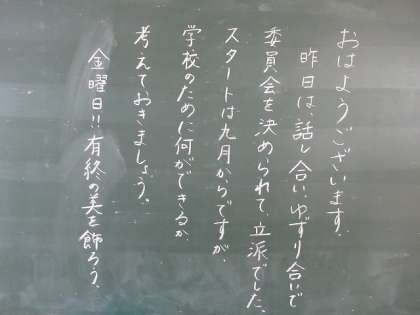 おはようございます。
昨日は、話し合い、ゆずり合いで
委員会を決められて、立派でした。
スタートは九月からですが、
学校のために何ができるか、
考えておきましょう。
金曜日!!有終の美を飾ろう。